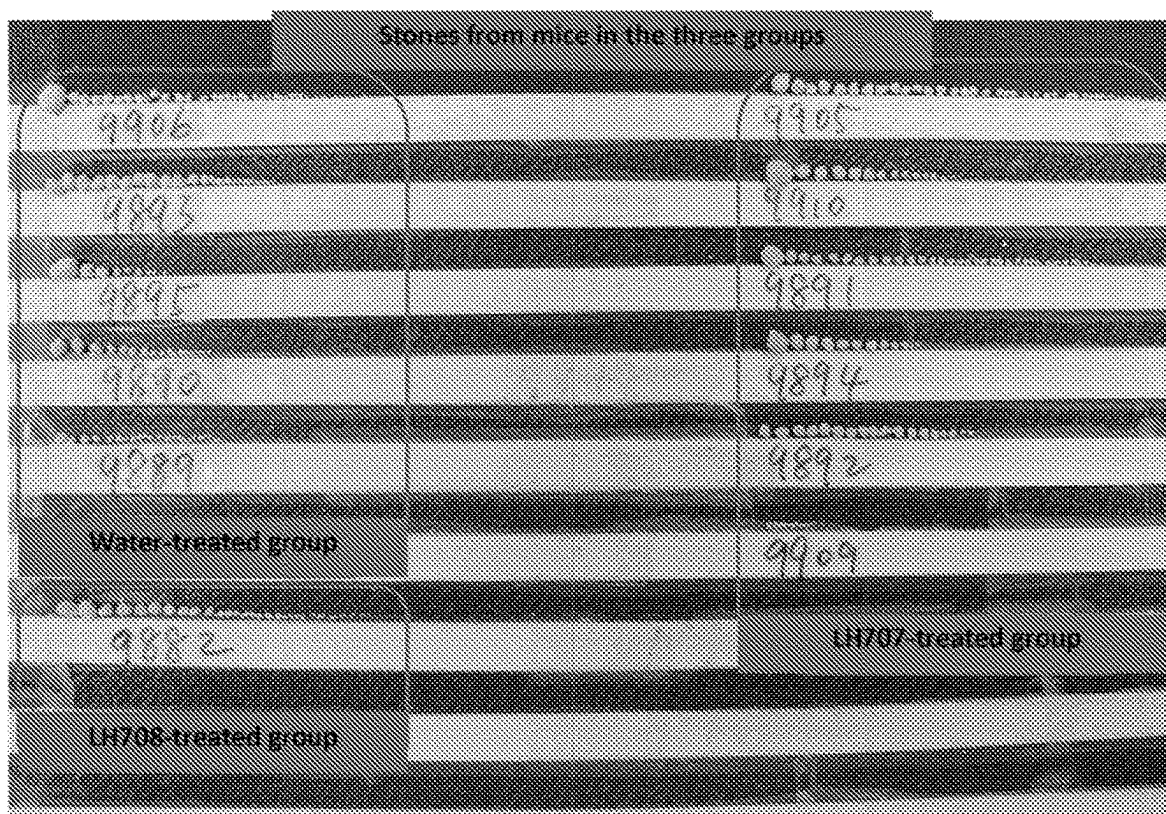 Stones from mice in the three groups
9906
9893
9895
9890
9889
Water-treated group
9882
LH708-treated group
9905
9910
9891
9894
9892
9909
LH707-treated group